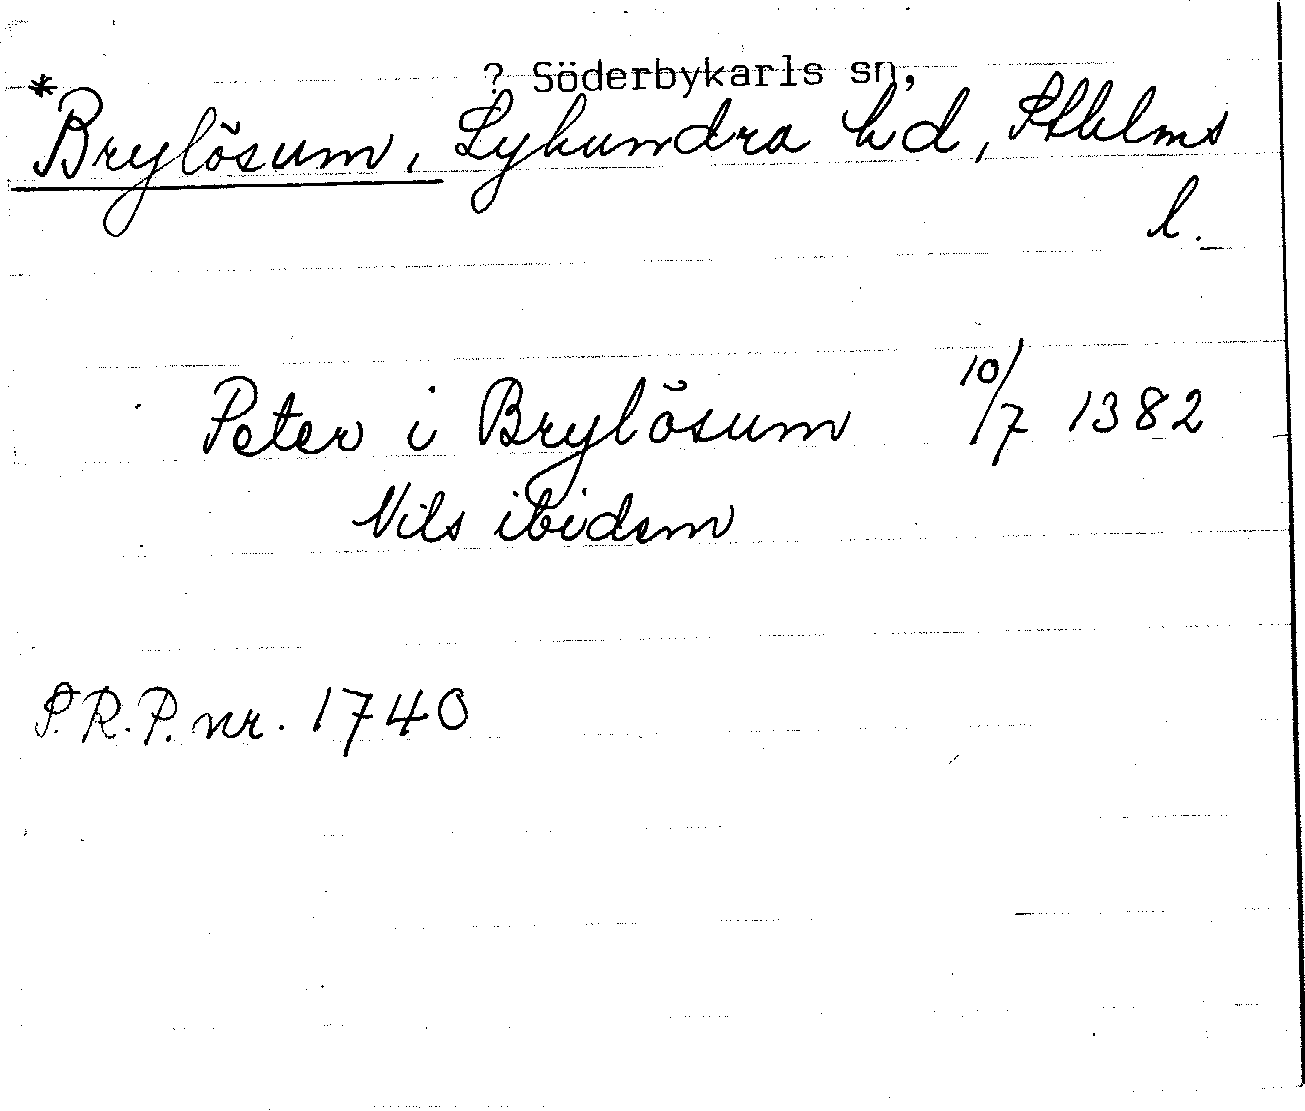 ? Söderbykarls sn,
*Brylösum, Lyhundra hd, Sthlms
l.
Peter i Brylösum 10/7 1382
Nils ibidem
S.R.P. nr. 1740